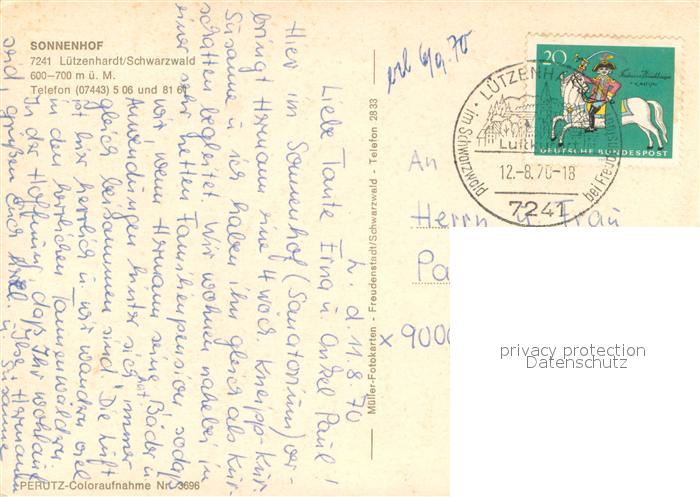 SONNENHOF
7241 Lützenhardt/Schwarzwald
600–700 m ü. M.
Telefon (07443) 5 06 und 81 6
L. d. 11.8.70
Liebe Tante Erna u. Onkel Paul!
Hier im Sonnenhof (Sanatorium) ver-
bringt Hermann eine 4 wöch. Kneipp-Kur
Susanne u. ich haben ihn gleich als Kur-
schatten begleitet. Wir wohnen nahebei in
einer sehr netten Familienpension, sodaß
wir, wenn Hermann seine Bäder u.
Anwendungen hinter sich hat, immer
gleich beisammen sind. Die Luft
ist hier herrlich u. wir wandern viel
in den herrlichen Tannenwäldern
In der Hoffnung, daß Ihr wohlauf
seid, grüßen Euch herzl. Ilse, Hermann
u. Susanne
PERUTZ-Coloraufnahme Nr. 3696
Müller-Fotokarten - Freudenstadt/Schwarzwald - Telefon 2833
erh 6/9.70
20
DEUTSCHE BUNDESPOST
LÜTZENHA
Luftk
im Schwarzwald
bei Freud
12.-8.70-18
7241
An
Herrn u. Frau
Pa
x 9000
privacy protection
Datenschutz